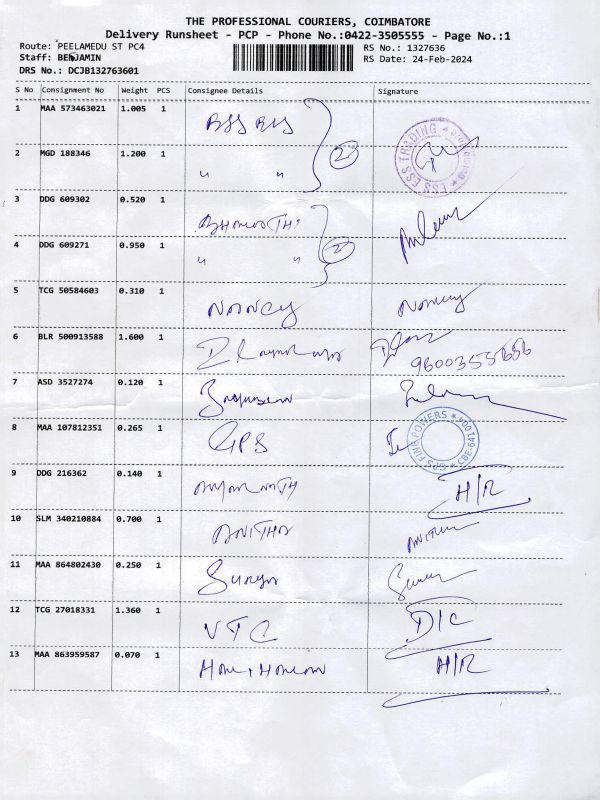 THE PROFESSIONAL COURIERS, COIMBATORE
Delivery Runsheet - PCP - Phone No.:0422-3505555 - Page No.:1
Route: PEELAMEDU ST PC4
RS No.: 1327636
Staff: BENJAMIN
RS Date: 24-Feb-2024
DRS No.: DCJB132763601
S No Consignment No Weight PCS Consignee Details Signature
1 MAA 573463021 1.005 1
2 MGD 188346 1.200 1 " " 2
ESS TRADING
3 DDG 609302 0.520 1
4 DDG 609271 0.950 1 " " 2
5 TCG 50584603 0.310 1 NANCY Nancy
6 BLR 500913588 1.600 1
9600355656
7 ASD 3527274 0.120 1
8 MAA 107812351 0.265 1 GPS
GPS FIRE POWERS CBE-641 004
9 DDG 216362 0.140 1 H/R
10 SLM 340210884 0.700 1 ANITHA
11 MAA 864802430 0.250 1 Surya
12 TCG 27018331 1.360 1 VTC D/C
13 MAA 863959587 0.070 1 H/R